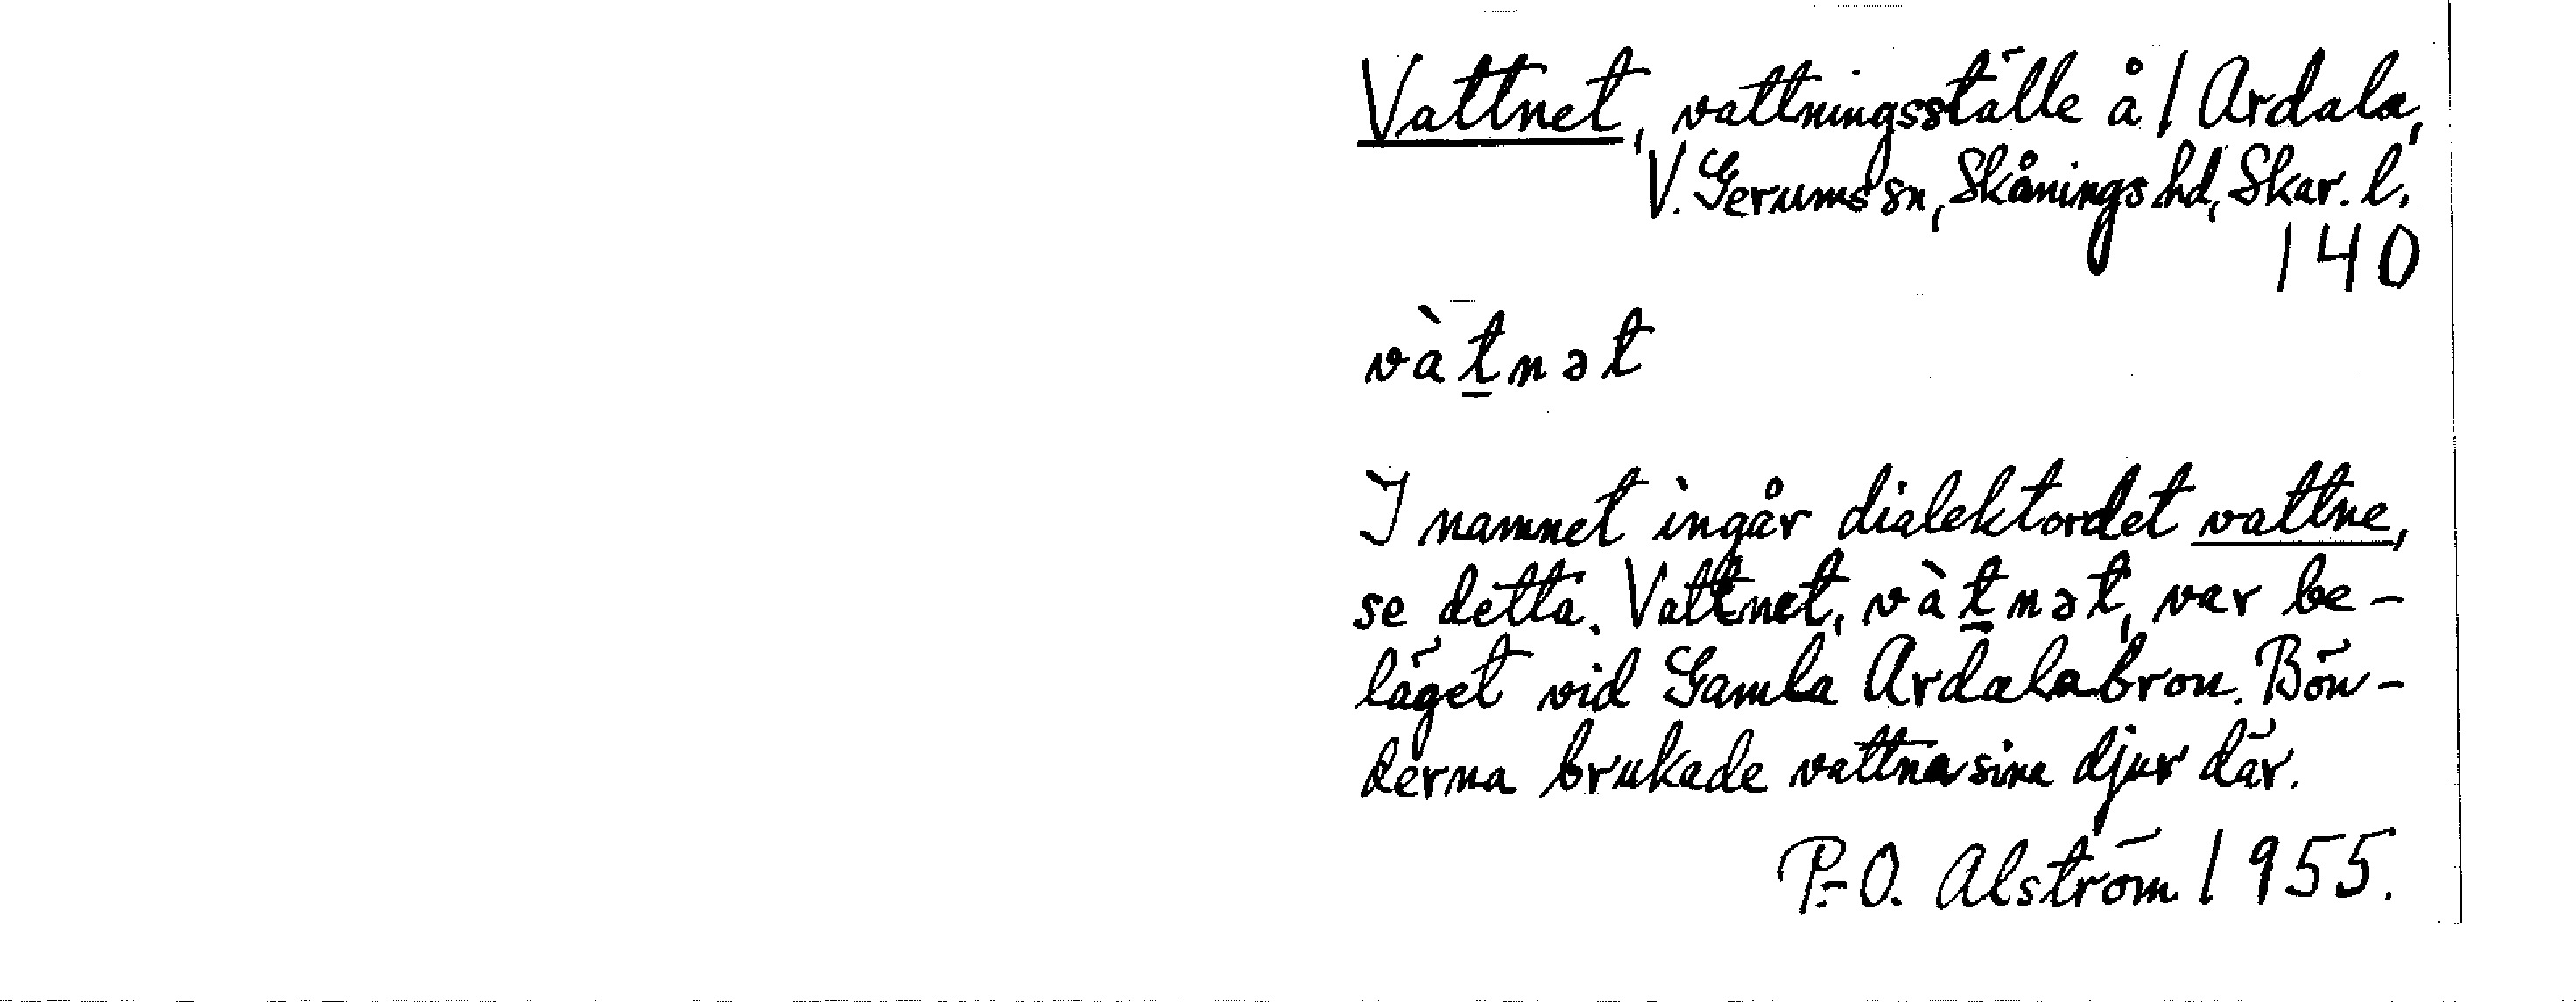 Vattnet, vattningsställe å 1 Ardala,
V. Gerums sn, Skånings hd, Skar. l.
140
vàt̲nət
I namnet ingår dialektordet vattne,
se detta. Vattnet, vàt̲nət, var be-
läget vid Gamla Ardalabron. Bön-
derna brukade vattna sina djur där.
P.-O. Alström 1955.